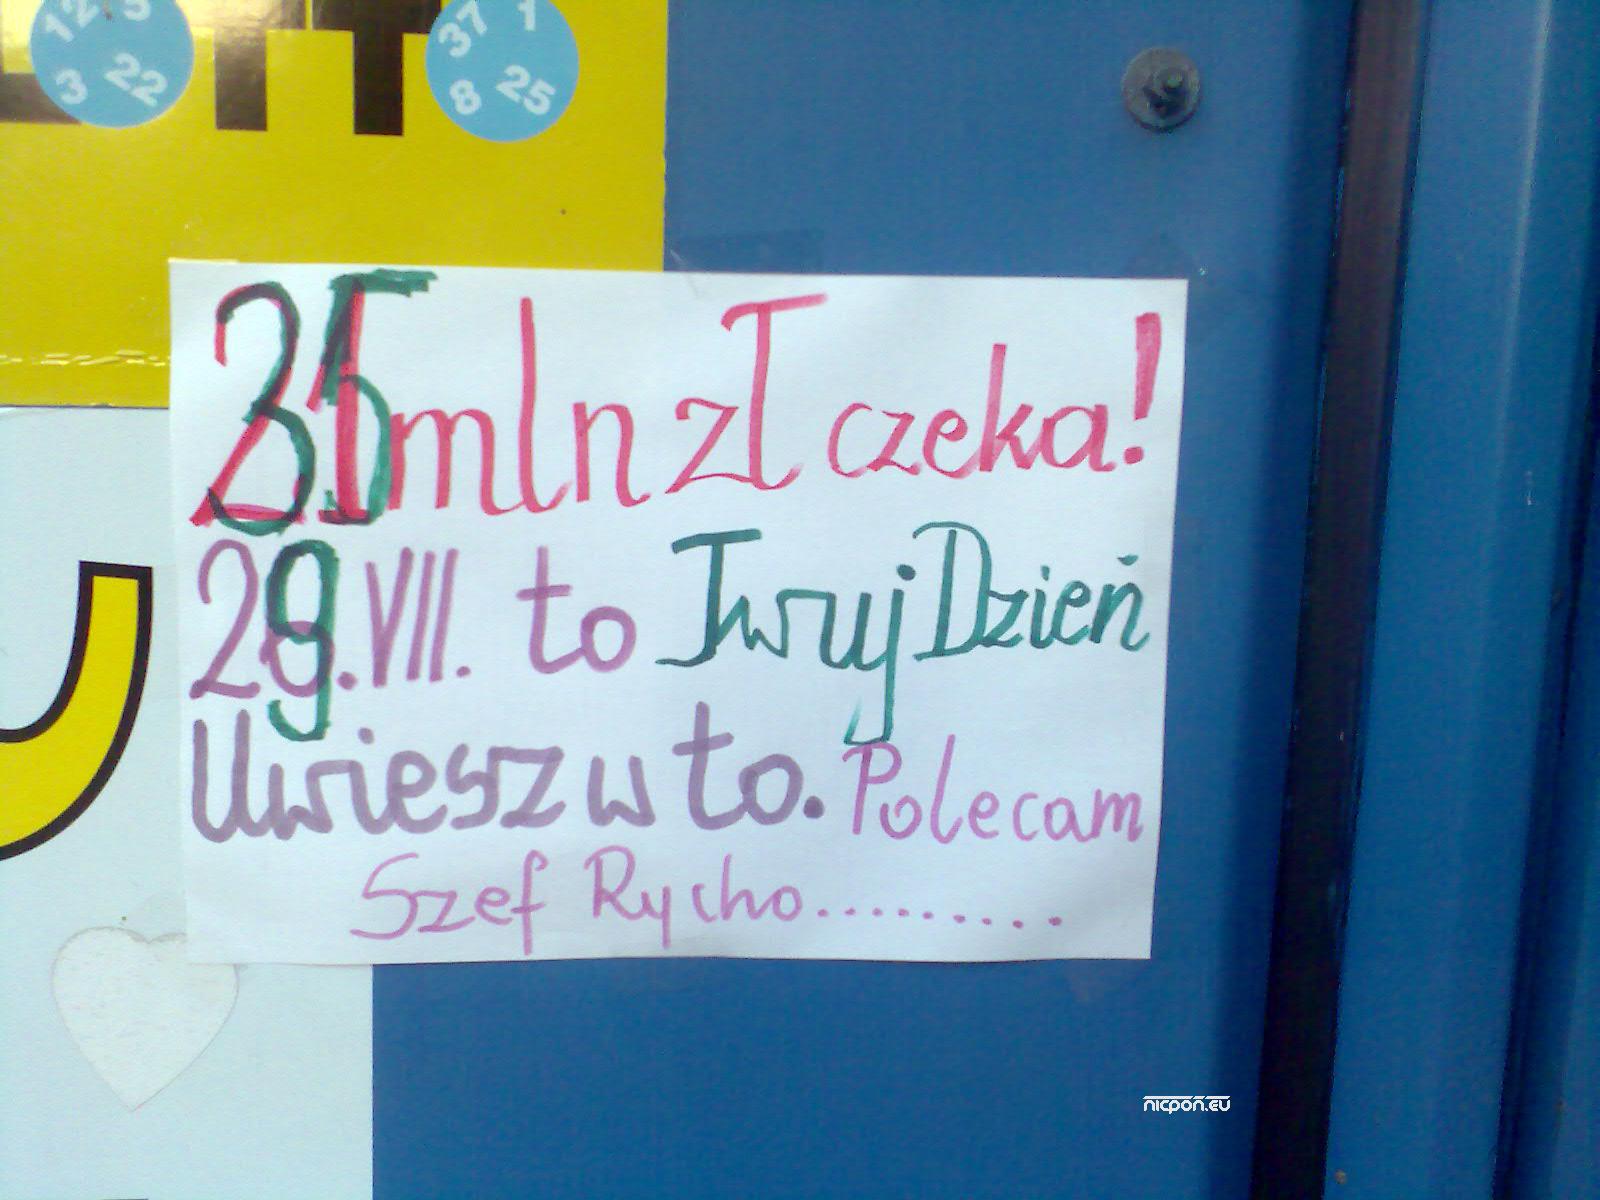 12 5
3 22
37 1
8 25
35 mln zł czeka!
29.VII. to Twuj Dzień
Uwiesz w to. Polecam
Szef Rycho.........
nicpoń.eu